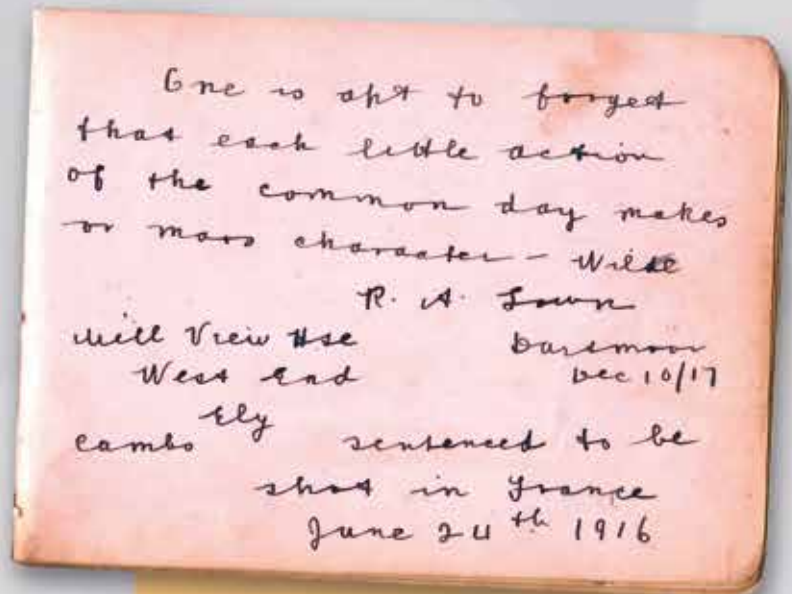 One is apt to forget
that each little action
of the common day makes
or mars character - Wilde
R. A. Lown
Mill View Hse
Dartmoor
West End
Dec 10/17
Ely
Cambs
sentenced to be
shot in France
June 24th 1916